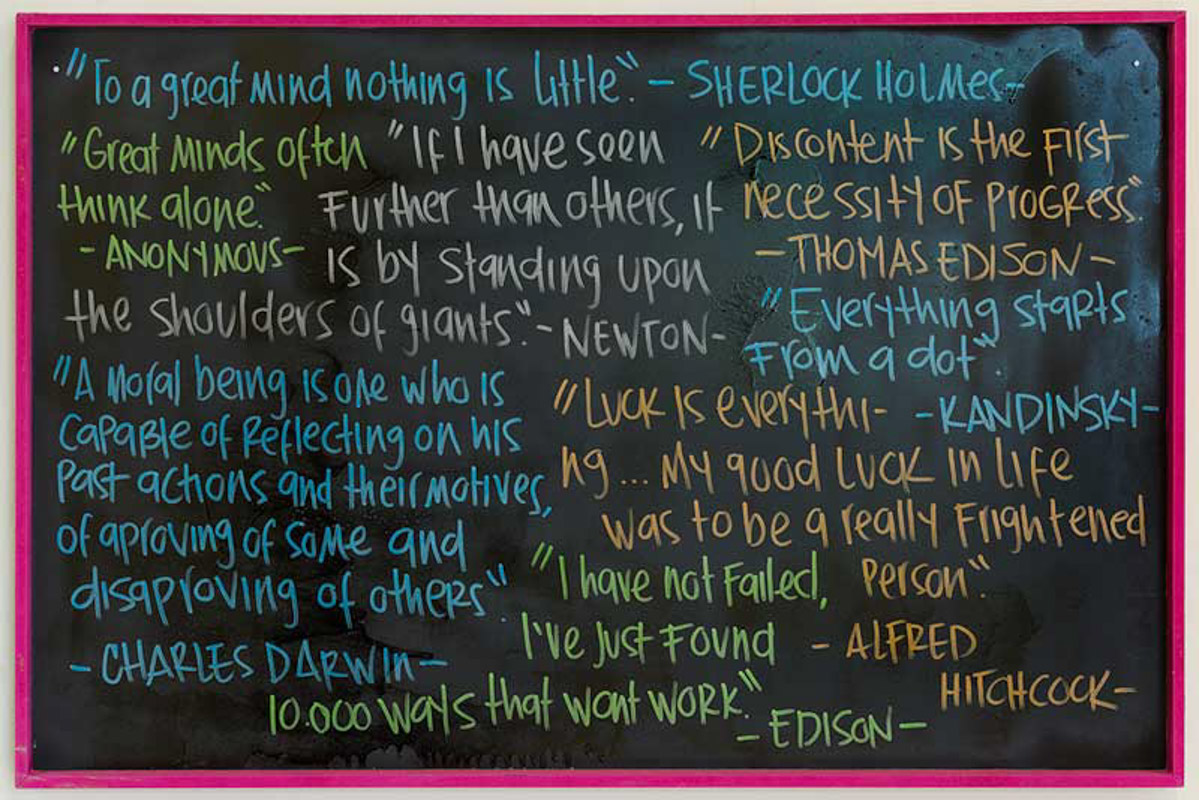 "To a great mind nothing is little". - SHERLOCK HOLMES-
"Great minds often
think alone".
- ANONYMOUS-
"If I have seen
Further than others, it
is by standing upon
the shoulders of giants". - NEWTON-
"Discontent is the first
necessity of progress".
- THOMAS EDISON -
"Everything starts
from a dot".
-KANDINSKY-
"A moral being is one who is
capable of reflecting on his
past actions and their motives,
of aproving of some and
disaproving of others"
- CHARLES DARWIN-
"Luck is everythi-
ng... My good luck in life
was to be a really frightened
person".
- ALFRED
HITCHCOCK-
"I have not failed,
I've just found
10.000 ways that wont work".
- EDISON-